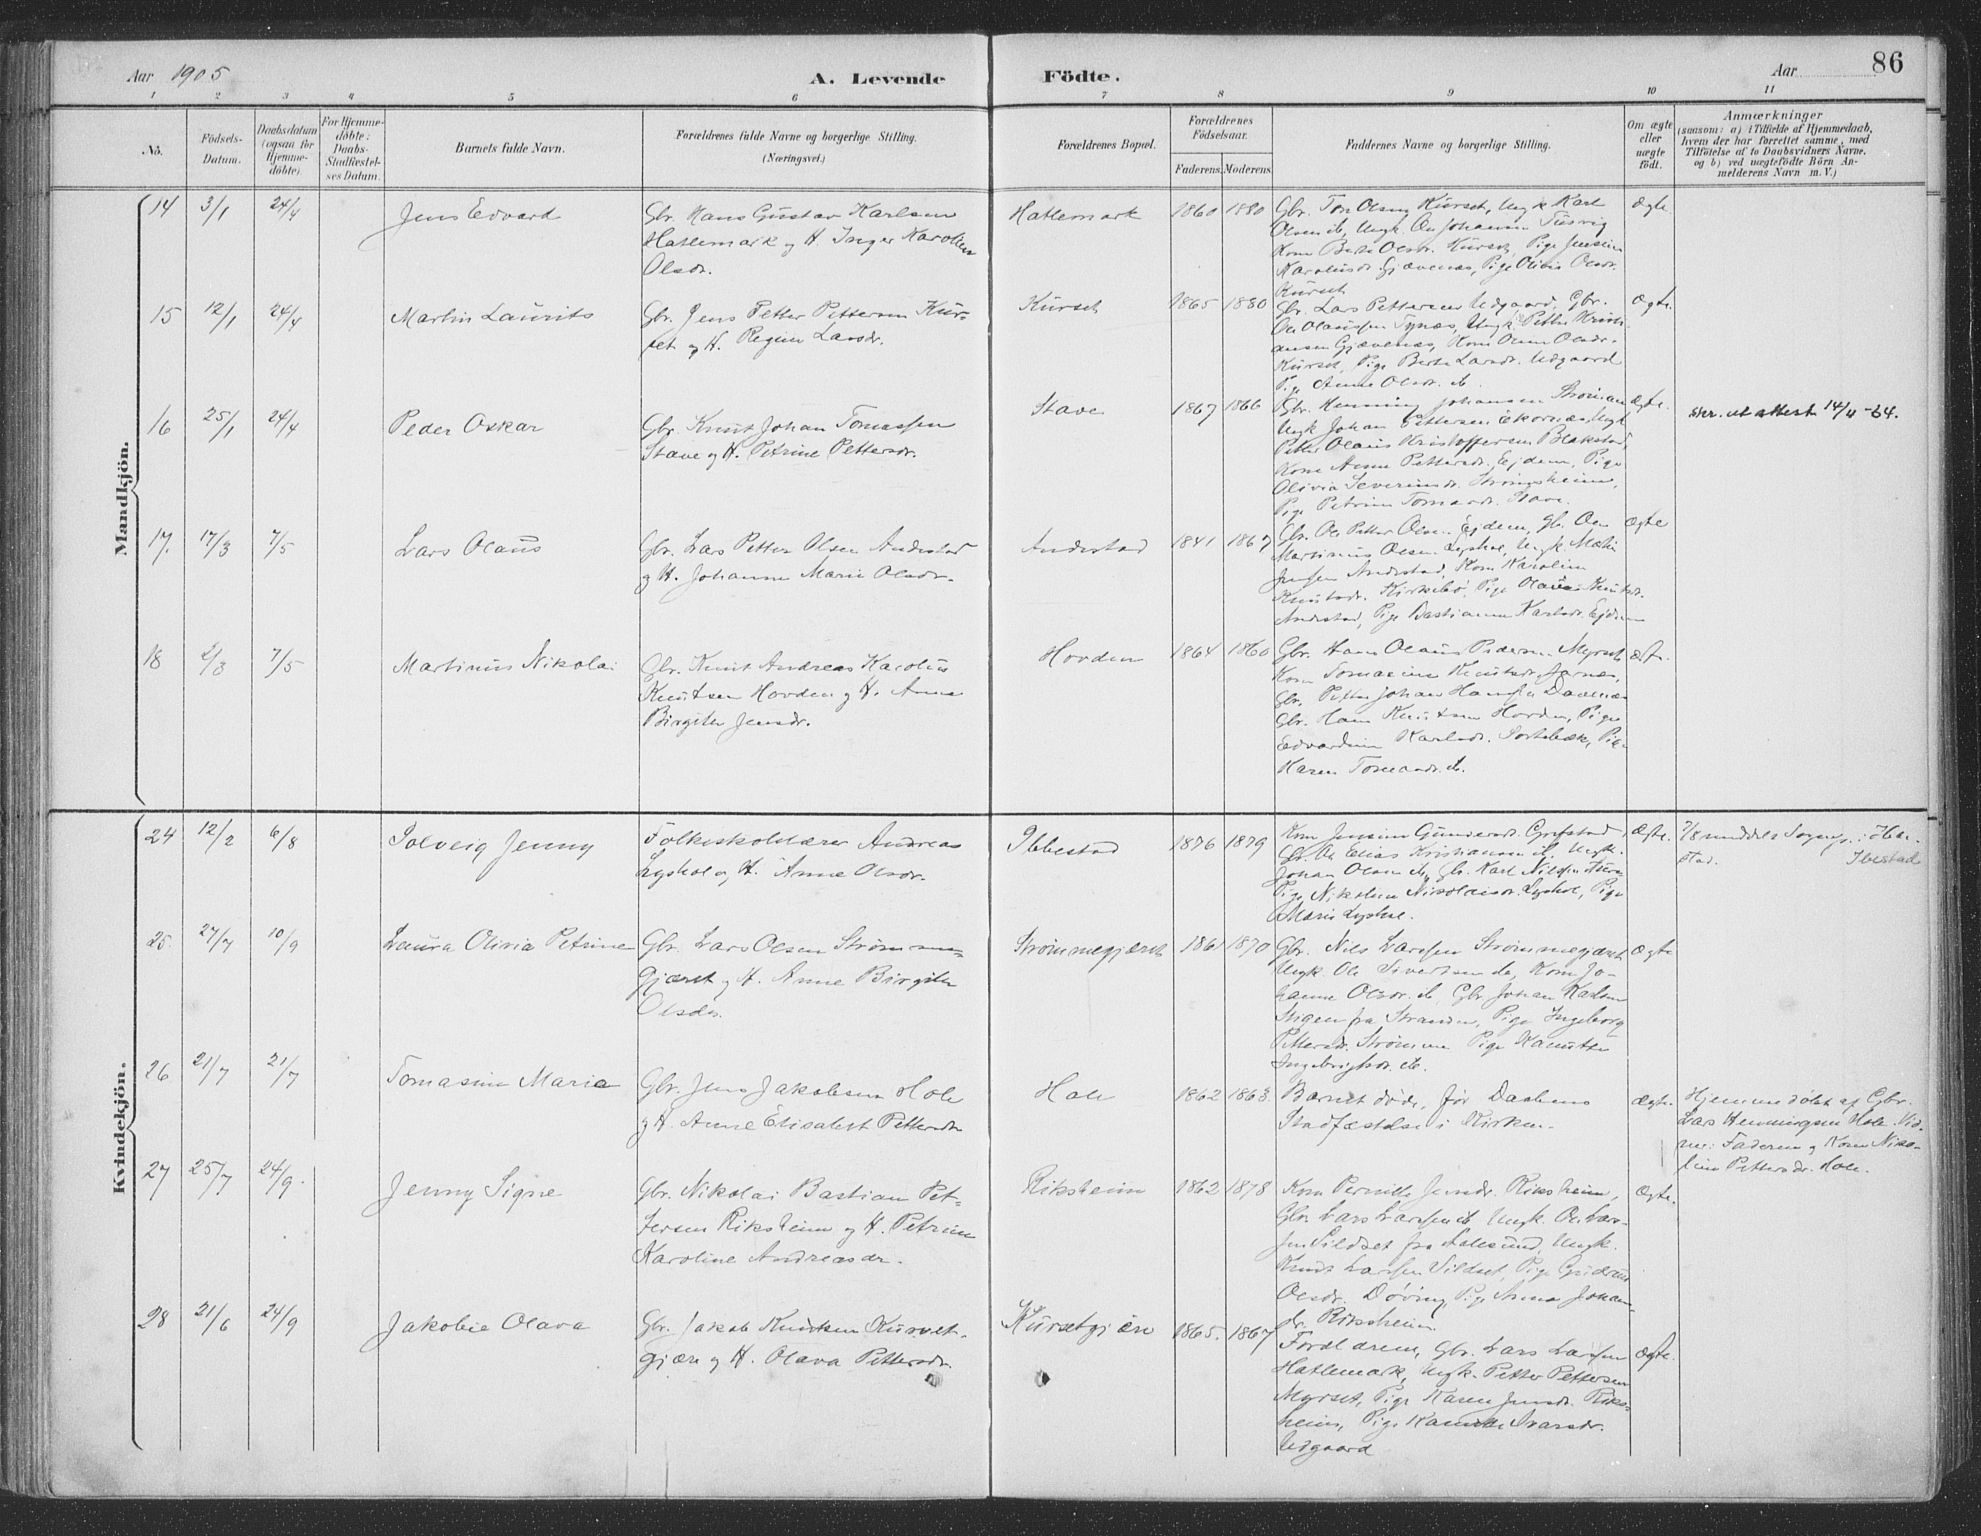 Aar 1905
A. Levende Födte.
Aar
86
1 2 3 4 5 6 7 8 9 10 11
No.
Födsels-
Datum.
Daabsdatum
(ogsaa for
Hjemme-
döbte).
For Hjemme-
döbte:
Daabs-
Stadfæstel-
ses Datum.
Barnets fulde Navn.
Forældrenes fulde Navne og borgerlige Stilling.
(Næringsvei.)
Forældrenes Bopæl.
Forældrenes
Födselsaar.
Faderens. Moderens.
Faddernes Navne og borgerlige Stilling.
Om ægte
eller
uægte
födt.
Anmærkninger
(saasom: a) i Tilfælde af Hjemmedaab,
hvem der har forrettet samme, med
Tilföielse af to Daabsvidners Navne.
og b) ved uægtefödte Börn An-
melderens Navn m. V.)
Mandkjön.
14 3/1 24/4 Jens Edvard
Gbr. Hans Gustav Karlsen
Hatlemark og H. Inger Karoline
Olsdr.
Hatlemark 1860 1880
Gbr. Tore Olsen Kurset, Ungk. Karl
Olsen ib, Ungk. Ole Johansen
Kone Berte Olsdr. Kurset, Pige Jensine
Gjævenes, Pige Olivie Olsdr.
Kurset
Ægte.
15 12/1 24/4 Martin Laurits
Gbr. Jens Petter Pettersen Kur-
set og H. Regine Larsdr.
Kurset 1865 1880
Gbr. Lars Pettersen Udgaard, Gbr.
Ole Olaussen Tynæs, Ungk. Petter Kristi-
ansen Gjævenes, Kone Olsdr.
Kurset, Pige Berte Larsdr. Udgaard
Pige Anne Olsdr. ib.
Ægte.
16 25/1 24/4 Peder Oskar
Gbr. Knut Johan Tomassen
Stave og H. Petrine Pettersdr.
Stave 1867 1866
Gbr. Henning Johansen
Ungk. Johan Pettersen Ekornæs, Ungk.
Petter Olaus Kristoffersen Blakstad,
Kone Anne Pettersdr. Ejdem, Pige
Olivia Severinsdr. Strømsheim,
Pige Petrine Tomasdr. Stave.
Ægte.
skr. ut attest 14/4-64.
17. 17/3 7/5 Lars Olaus
Gbr. Lars Petter Olsen Andestad
og H. Johanne Marie Olsdr.
Andestad 1841 1867
Gbr. Ole Petter Olsen Ejdem, Gbr. Ole
Martinus Olsen Lyshol, Ungk.
Jensen Andestad, Kone Karoline
Knutsdr. Kirkebø, Pige Knutsdr.
Andestad, Pige Bastianna Karlsdr. Ejdem
Ægte
18 2/3 7/5 Martinus Nikolai
Gbr. Knut Andreas Karolus
Knutsen Hovden og H. Anne
Birgite Jensdr.
Hovden 1864 1860
Gbr. Hans Olaus Pedersen Myrset
Kone Tomasine Knutsdr. Jarnes,
Gbr. Petter Johan Hansen
Gbr. Hans Knutsen Hovden, Pige
Edvardine Karlsdr. Sortebæk, Pige
Karen Tomasdr. ib.
Ægte.
Kvindekjön.
24 12/2 6/8 Solveig Jenny
Folkeskolelærer Andreas
Lyshol og H. Anne Olsdr.
Ibbestad 1876 1879
Kone Jensine Gunnersdr. Grytstad,
Gbr. Ole Elias Kristiansen ib, Ungk.
Johan Olsen ib, Gbr. Karl Nilsen
Pige Nikoline Nikolaisdr. Lyshol, Pige
Marie Lyshol.
Ægte.
7/8 meddelt Sogneprest i Ibe-
stad. Ibestad
25. 27/7 10/9 Laura Olivia Petrine
Gbr. Lars Olsen Strømme-
gjæret og H. Anne Birgite
Olsdr.
Strømmegjæret 1861 1870
Gbr. Nils Larssen Strømmegjæret
Ungk. Ole Sivertsen ib, Kone Jo-
hanne Olsdr. ib. Gbr. Johan Karlsen
Stigen fra Stranden, Pige Ingeborg
Pettersdr. Strømme Pige
Ingebrigtsdr. ib.
Ægte
26 21/7 21/7 Tomasine Maria
Gbr. Jens Jakobsen Hole
og H. Anne Elisabet Pettersdr.
Hole 1862 1863
Barnet døde, før Daabens
Stadfæstelse i Kirken.
Ægte.
Hjemmedøbt af Gbr.
Lars Henningsen Hole. Vid-
ner: Faderen og Kone Niko-
line Pettersdr. Hole.
27 25/7 24/9 Jenny Signe
Gbr. Nikolai Bastian Pet-
tersen Riksheim og H. Petrine
Karoline Andreasdr.
Riksheim 1862 1878
Kone Pernille Jensdr. Riksheim,
Gbr. Lars Larssen ib Ungk. Ole Lars-
sen Sildset fra Aalesund, Ungk.
Knut Larssen Sildset, Pige
Olsdr. Døving, Pige Anna Johan-
dr. Riksheim
Ægte.
28 21/6 24/9 Jakobie Olava
Gbr. Jakob Knutsen Kurset-
gjære og H. Olava Pettersdr.
Kursetgjære 1865. 1867
Forældrene, Gbr. Lars Larssen
Hatlemark, Ungk. Petter Pettersen
Myrset, Pige Karen Jensdr. Riks-
heim, Pige Ivarsdr.
Udgaard
Ægte.